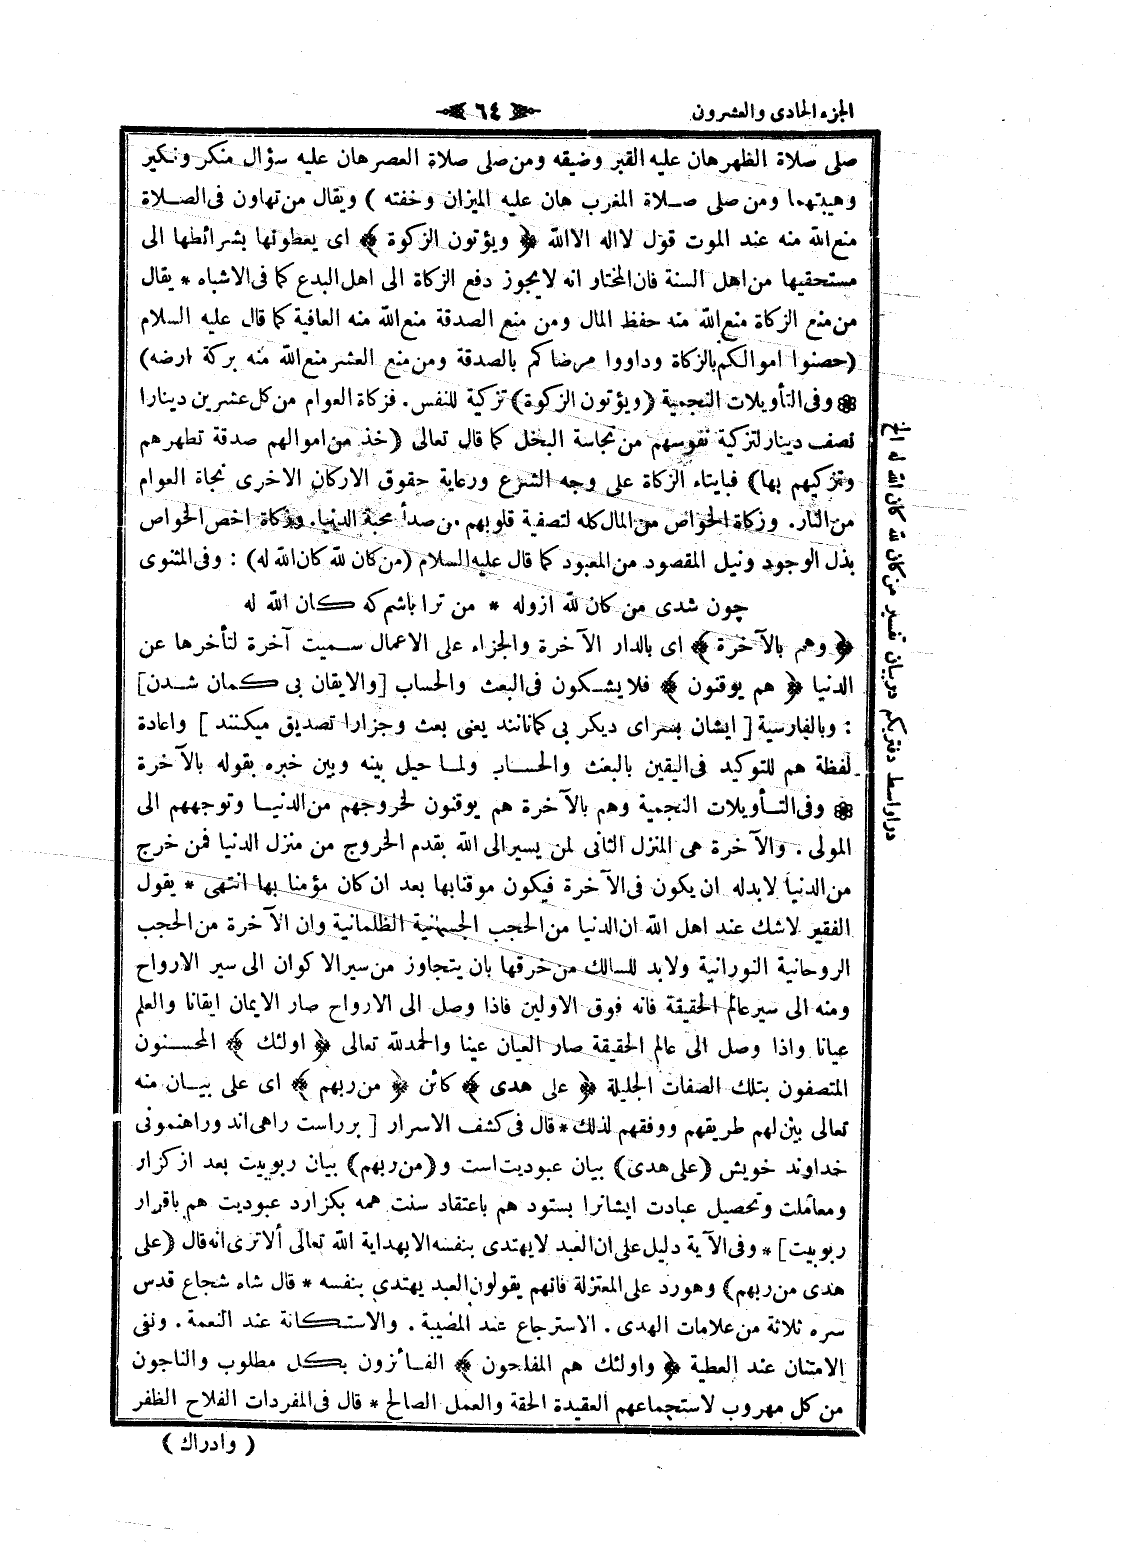 الجزء الحادى والعشرون
٦٤
صلى صلاة الظهر هان عليه القبر وضيقه ومن صلى صلاة العصر هان عليه سؤال منكر ونكير
وهيبتهما ومن صلى صلاة المغرب هان عليه الميزان وخفته ) ويقال من تهاون فى الصلاة
منع الله منه عند الموت قول لا اله الا الله ﴿ ويؤتون الزكوة ﴾ اى يعطونها بشرائطها الى
مستحقيها من اهل السنة فان المختار انه لايجوز دفع الزكاة الى اهل البدع كما فى الاشباه * يقال
من منع الزكاة منع الله منه حفظ المال ومن منع الصدقة منع الله منه العافية كما قال عليه السلام
(حصنوا اموالكم بالزكاة وداووا مرضاكم بالصدقة ومن منع العشر منع الله منه بركة ارضه)
❁ وفى التأويلات النجمية (ويؤتون الزكوة) تزكية للنفس . فزكاة العوام من كل عشرين دينارا
نصف دينار لتزكية نفوسهم من نجاسة البخل كما قال تعالى (خذ من اموالهم صدقة تطهرهم
وتزكيهم بها) فبايتاء الزكاة على وجه الشرع ورعاية حقوق الاركان الاخرى نجاة العوام
من النار . وزكاة الخواص من المال كله لتصفية قلوبهم من صدأ محبة الدنيا . وزكاة اخص الخواص
بذل الوجود ونيل المقصود من المعبود كما قال عليه السلام (من كان لله كان الله له) : وفى المثنوى
چون شدى من كان لله ازوله * من ترا باشم كه كان الله له
﴿ وهم بالآخرة ﴾ اى بالدار الآخرة والجزاء على الاعمال سميت آخرة لتأخرها عن
الدنيا ﴿ هم يوقنون ﴾ فلايشكون فى البعث والحساب [والايقان بى كمان شدن]
: وبالفارسية [ ايشان بسراى ديكر بى كمانانند يعنى بعث وجزارا تصديق ميكنند ] واعادة
لفظة هم للتوكيد فى اليقين بالبعث والحساب ولما حيل بينه وبين خبره بقوله بالآخرة
❁ وفى التأويلات النجمية وهم بالآخرة هم يوقنون لخروجهم من الدنيا وتوجههم الى
المولى . والآخرة هى المنزل الثانى لمن يسير الى الله بقدم الخروج من منزل الدنيا فمن خرج
من الدنيا لابدله ان يكون فى الآخرة فيكون موقنابها بعد ان كان مؤمنا بها انتهى * يقول
الفقير لاشك عند اهل الله ان الدنيا من الحجب الجسمانية الظلمانية وان الآخرة من الحجب
الروحانية النورانية ولابد للسالك من خرقها بان يتجاوز من سير الاكوان الى سير الارواح
ومنه الى سير عالم الحقيقة فانه فوق الاولين فاذا وصل الى الارواح صار الايمان ايقانا والعلم
عيانا واذا وصل الى عالم الحقيقة صار العيان عينا والحمدلله تعالى ﴿ اولئك ﴾ المحسنون
المتصفون بتلك الصفات الجليلة ﴿ على هدى ﴾ كائن ﴿ من ربهم ﴾ اى على بيان منه
تعالى بين لهم طريقهم ووفقهم لذلك * قال فى كشف الاسرار [ برراست راهى اند وراهنمونى
خداوند خويش (على هدى) بيان عبوديت است و(من ربهم) بيان ربوبيت بعد از كزار
ومعاملت وتحصيل عبادت ايشانرا بستود هم باعتقاد سنت همه بكزارد عبوديت هم باقرار
ربوبيت] * وفى الآية دليل على ان العبد لايهتدى بنفسه الابهداية الله تعالى ألاترى انه قال (على
هدى من ربهم) وهورد على المعتزلة فانهم يقولون العبد يهتدى بنفسه * قال شاه شجاع قدس
سره ثلاثة من علامات الهدى . الاسترجاع عند المصيبة . والاستكانة عند النعمة . ونفى
الامتنان عند العطية ﴿ واولئك هم المفلحون ﴾ الفائزون بكل مطلوب والناجون
من كل مهروب لاستجماعهم العقيدة الحقة والعمل الصالح * قال فى المفردات الفلاح الظفر
( وادراك )
در اواسط دفتر يكم دربيان تفسير من كان لله كان الله له الخ